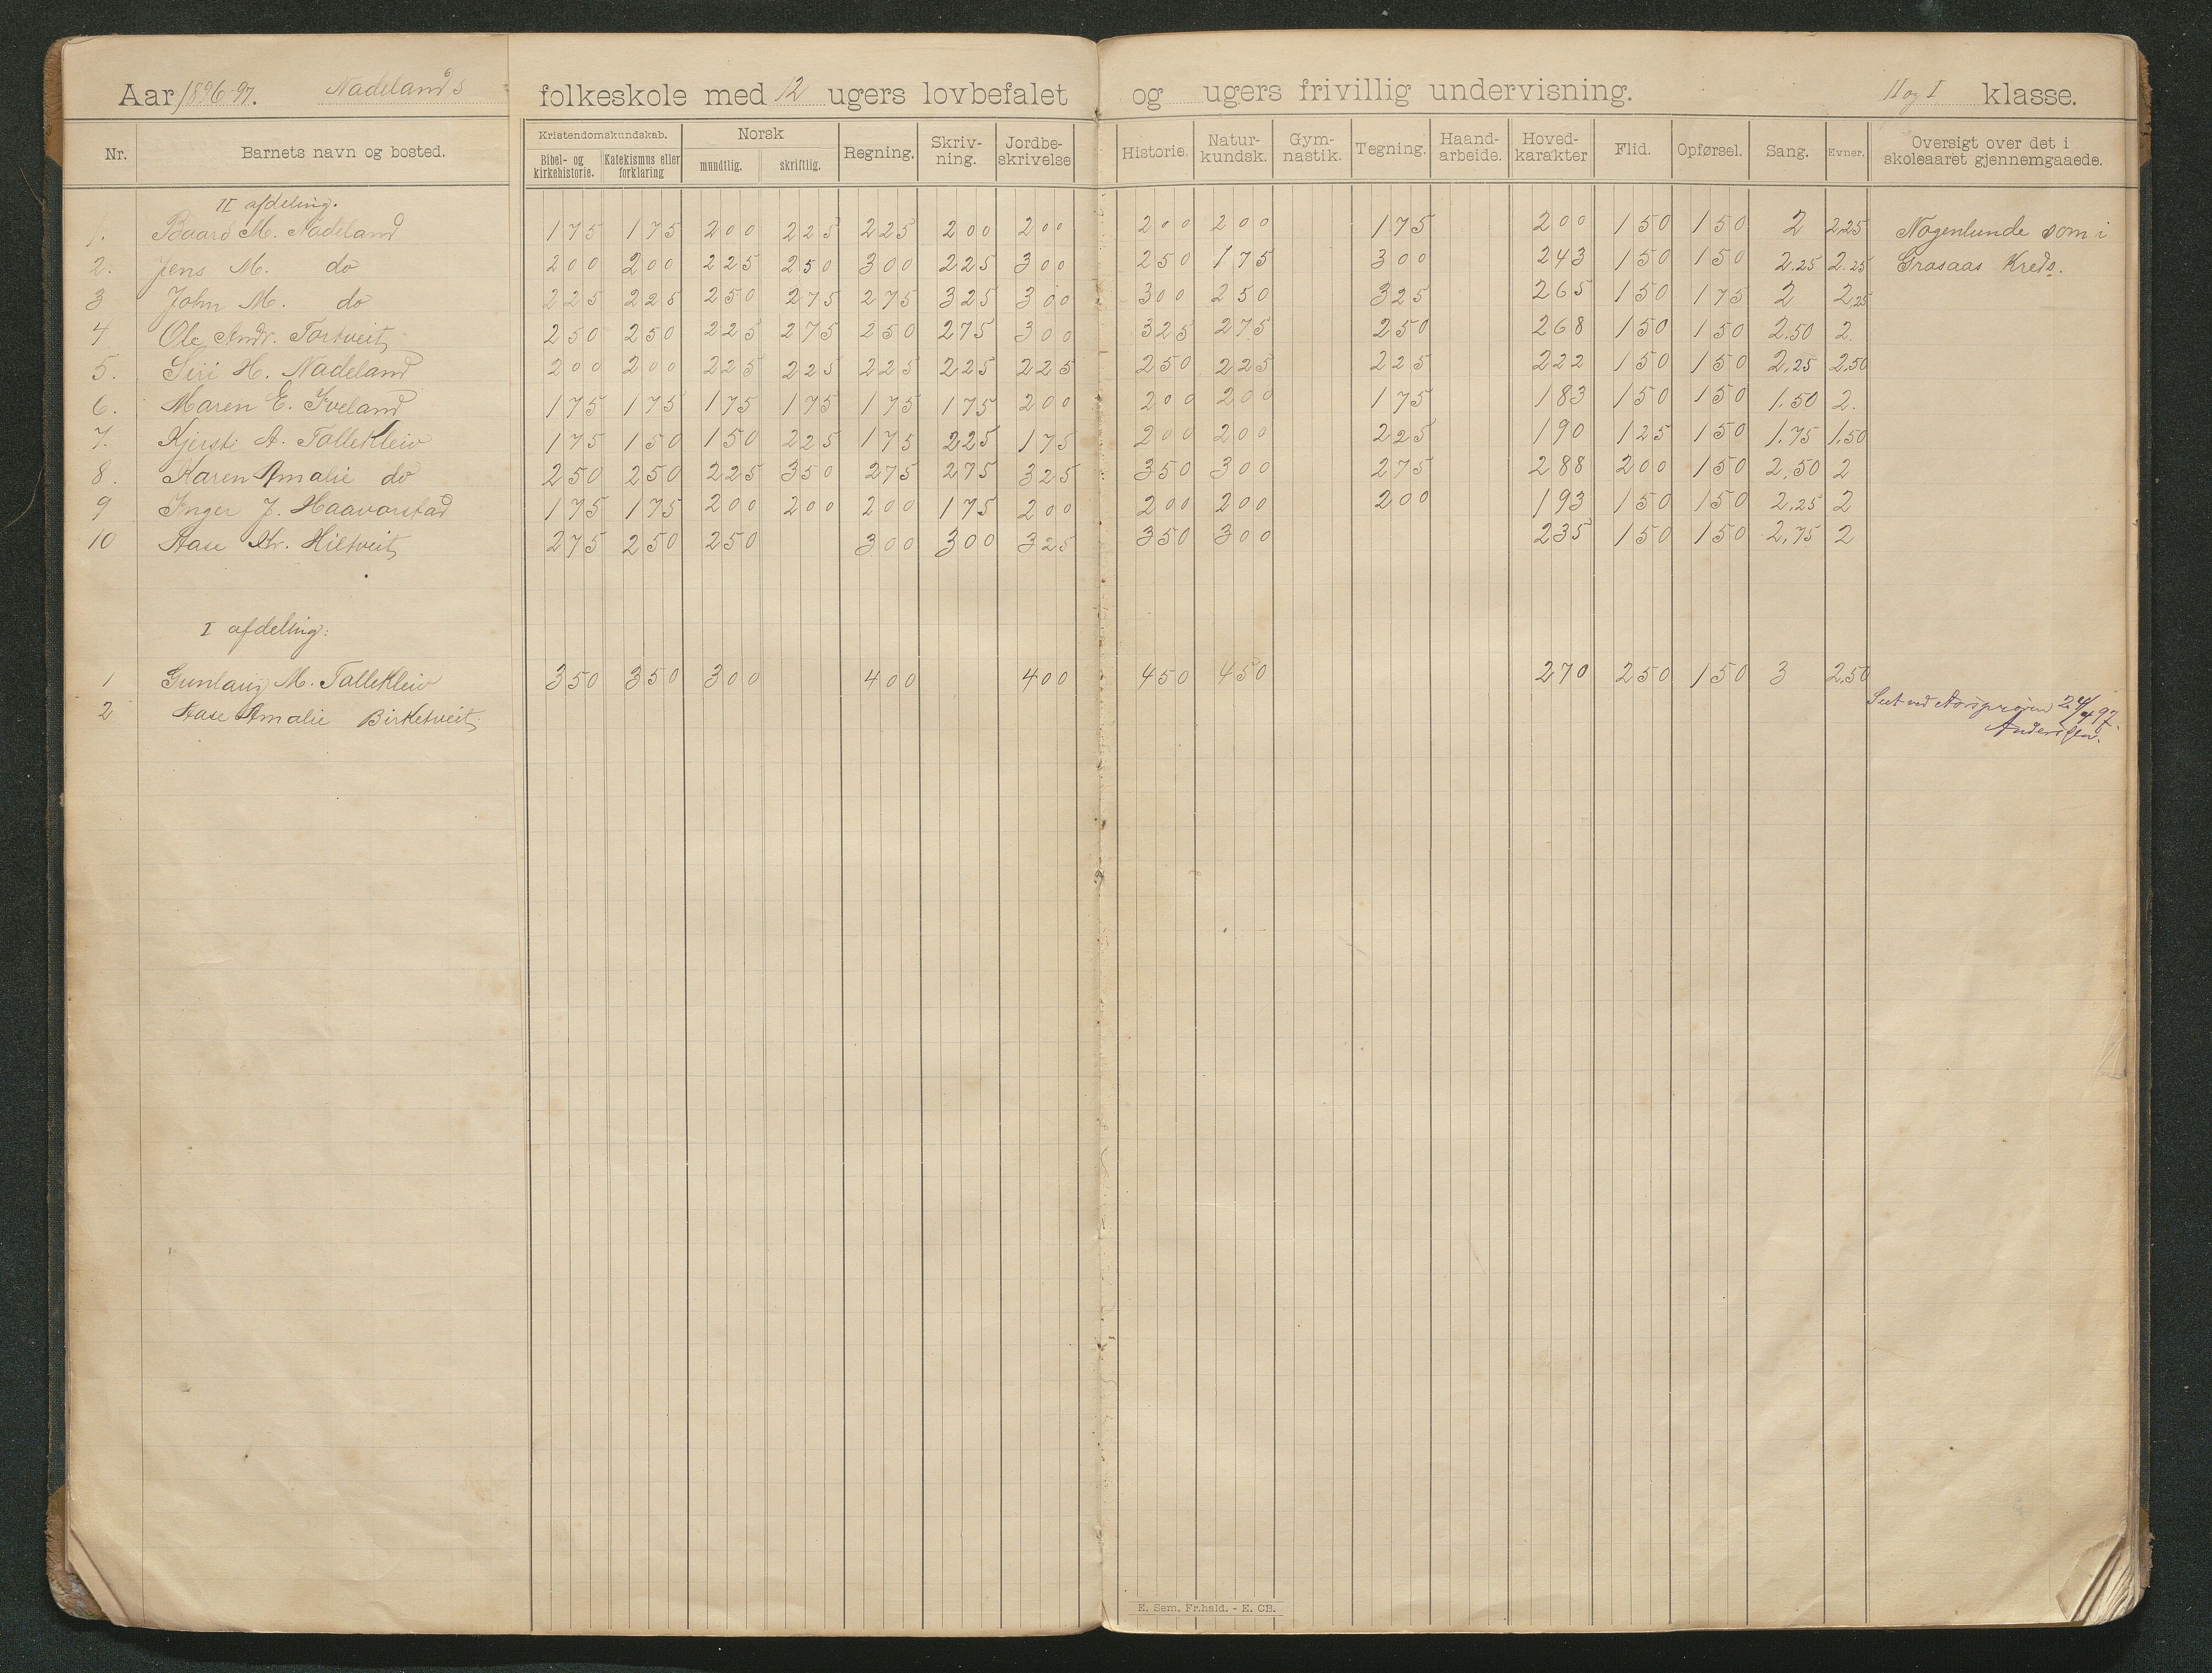 Aar 1896-97. Nadelands folkeskole med 12 ugers lovbefalet og ugers frivillig undervisning. II og I klasse.
Nr. Barnets navn og bosted. Kristendomskundskab. Bibel- og kirkehistorie. Katekismus eller forklaring Norsk mundtlig. skriftlig. Regning. Skriv-ning. Jordbe-skrivelse Historie. Natur-kundsk. Gym-nastik. Tegning. Haand-arbeide. Hoved-karakter Flid. Opførsel. Sang. Evner. Oversigt over det i skoleaaret gjennemgaaede.
II afdeling.
1. Baard M. Nadeland 175 175 200 225 225 200 200 200 200 175 200 150 150 2 2.25 Nogenlunde som i
2. Jens M. do 200 200 225 250 300 225 300 250 175 300 243 150 150 2.25 2.25 Grasaas Kreds.
3 John M. do 225 225 250 275 275 325 300 300 250 325 265 150 175 2 2.25
4 Ole Andr. Tortveit 250 250 225 275 250 275 300 325 275 250 268 150 150 2.50 2.
5. Siri H. Nadeland 200 200 225 225 225 225 225 250 225 225 222 150 150 2.25 2.50
6. Maren E. Iveland 175 175 175 175 175 175 200 200 200 175 183 150 150 1.50 2.
7. Kjersti A. Tallekleiv 175 150 150 225 175 225 175 200 200 225 190 125 150 1.75 1.50
8. Karen Amalie do 250 250 225 350 275 275 325 350 300 275 288 200 150 2.50 2
9 Inger J. Haavorstad 175 175 200 200 200 175 200 200 200 200 193 150 150 2.25 2
10 Aase Kr. Hiltveit 275 250 250 300 300 325 350 300 235 150 150 2.75 2
I afdeling:
1 Gunlaug M. Tallekleiv 350 350 300 400 400 450 450 270 250 150 3 2.50
2 Aase Amalie Birketveit
Seet ved Aarsprøven 24/4 97.
Anders
E. Sem, Fr.hald. - E. CB.